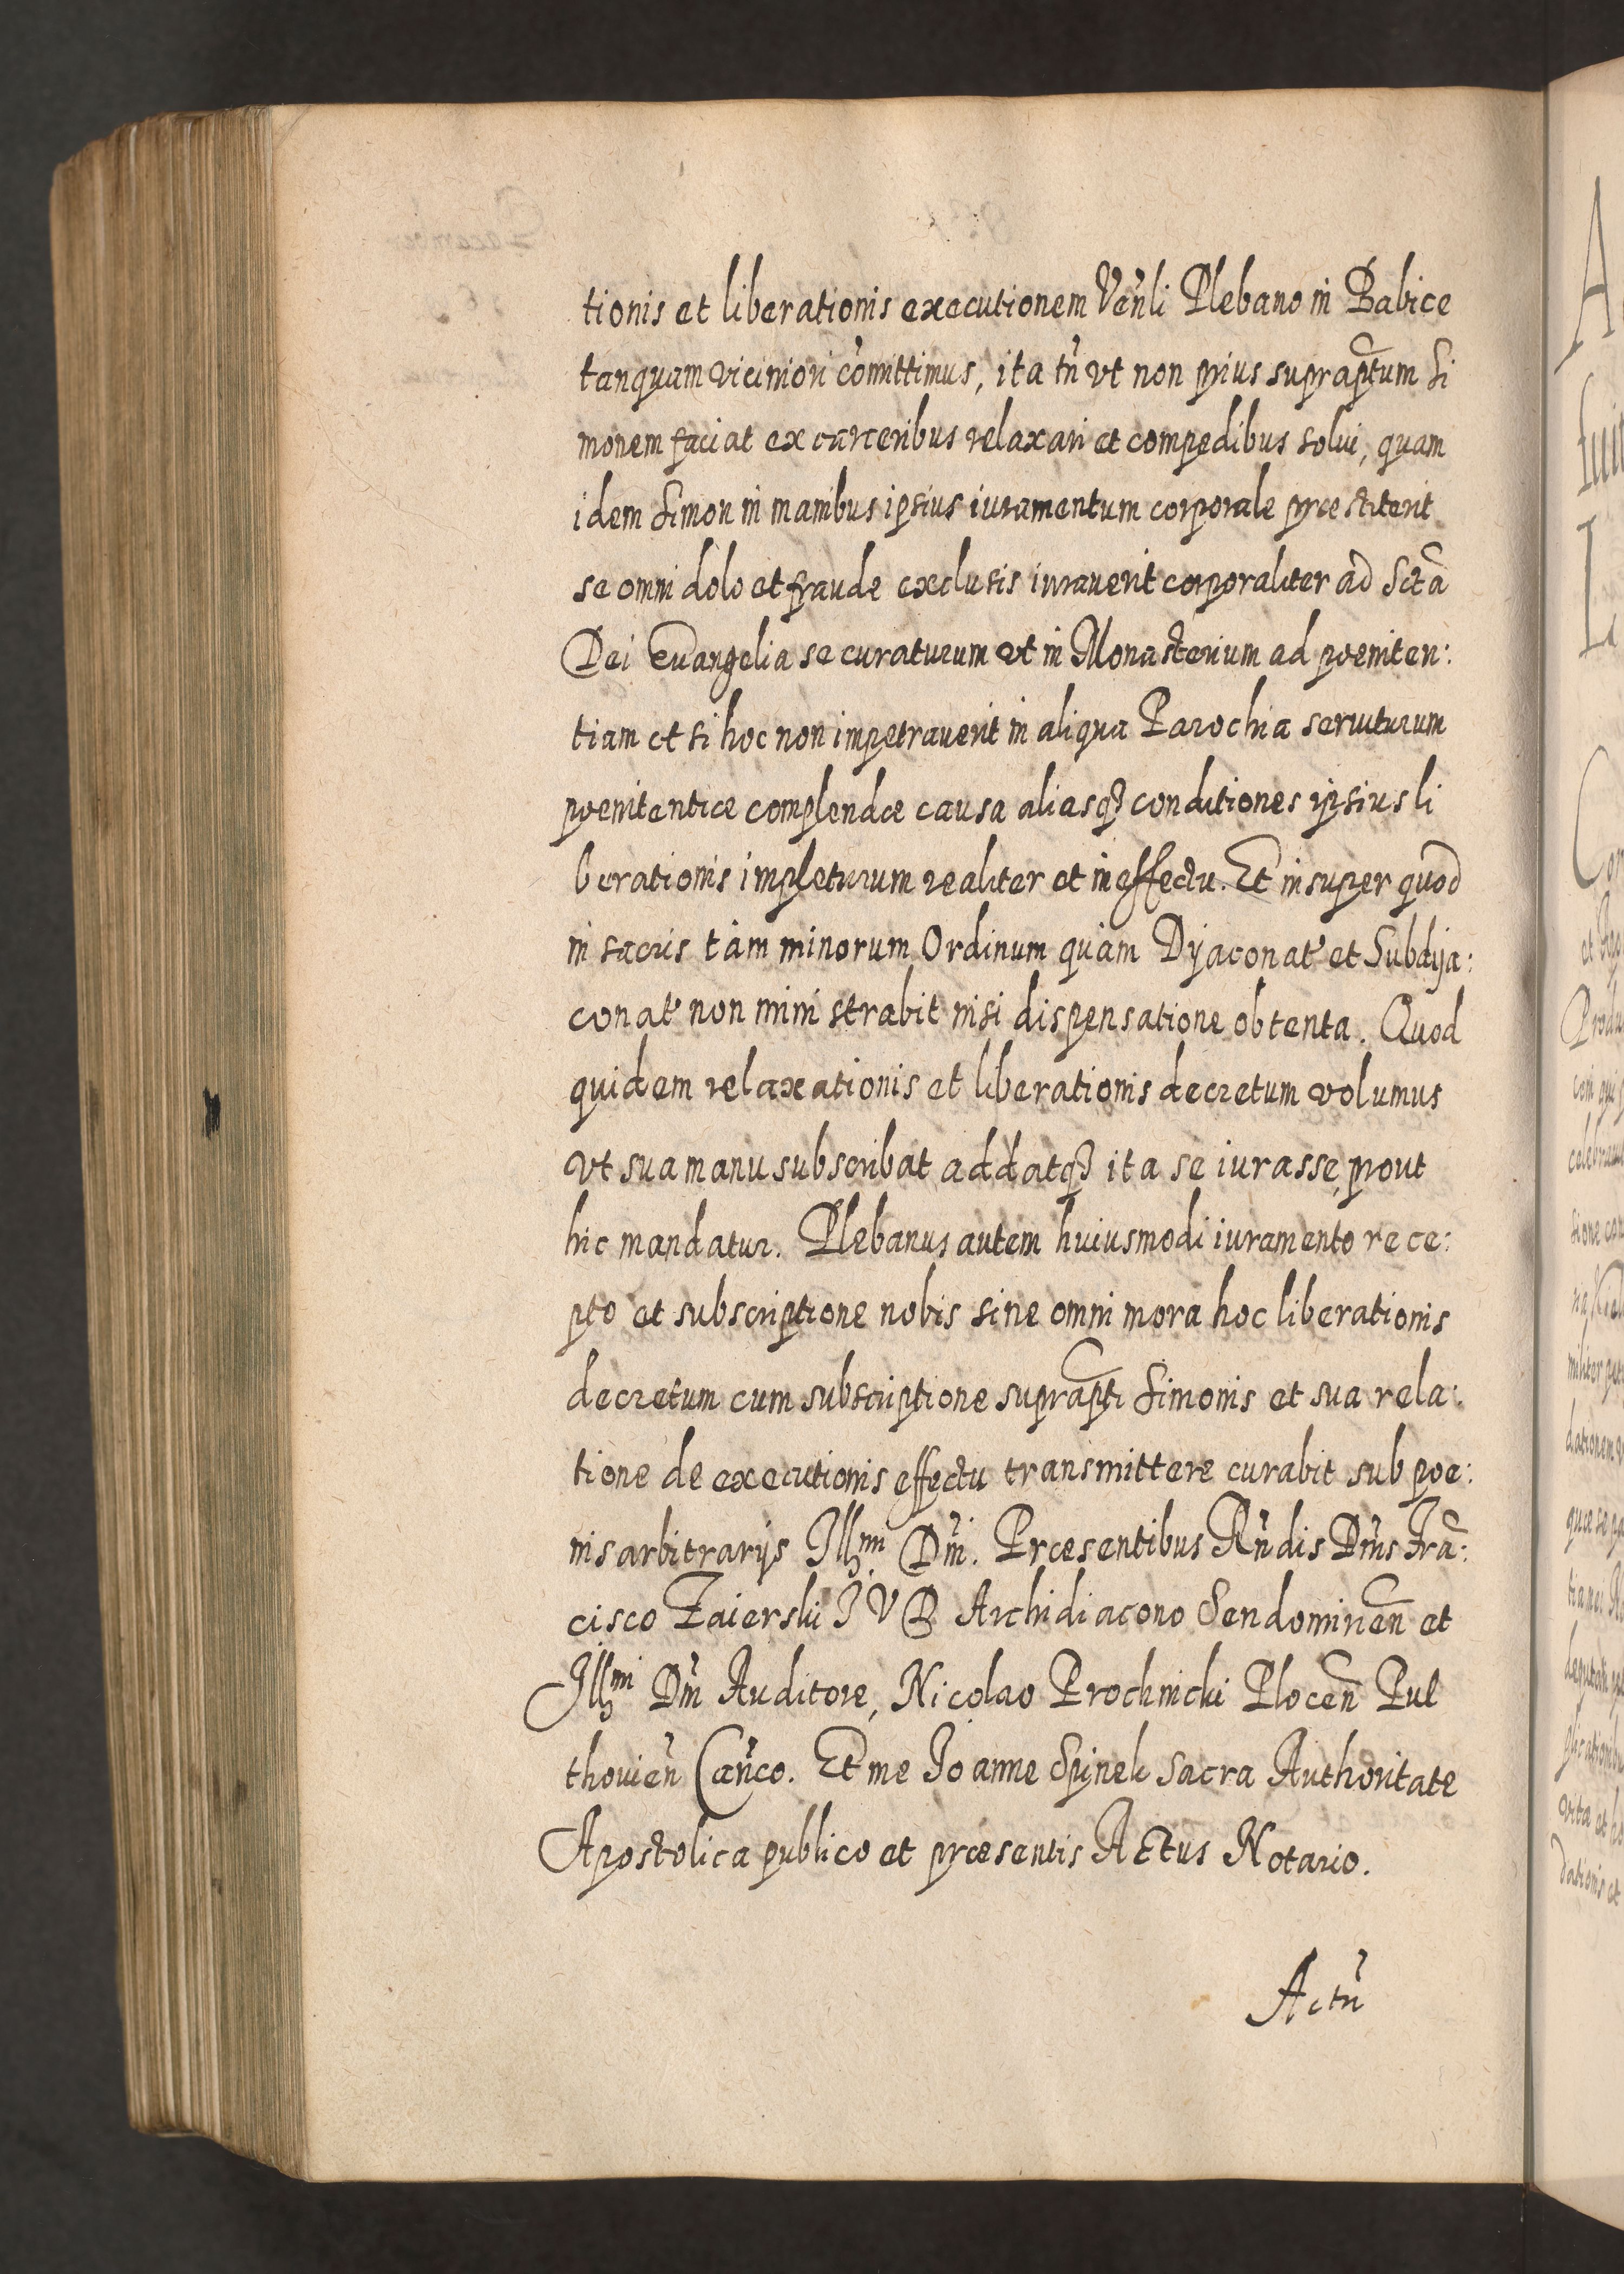 tionis et liberationis executionem Venli Plebano in Babice
tanquam viciniori comittimus, ita tn vt non prius supraptum Si
monem faciat ex carceribus relaxari et compedibus solui, quam
idem Simon in manibus ipsius iuramentum corporale præstiterit
se omni dolo et fraude exclusis iurauerit corporaliter ad Scta
Dei Euangelia se curaturum vt in Monasterium ad poeniten:
tiam et si hoc non impetrauerit in aliqua Parochia seruiturum
poenitentiæ complendæ causa aliasq3 conditiones ipsius li
berationis impleturum realiter et in effectu. Et insuper quod
in sacris tam minorum Ordinum quàm Dyaconat9 et Subdya:
conat9 non ministrabit nisi dispensatione obtenta. Quod
quidem relaxationis et liberationis decretum volumus
vt sua manu subscribat addatq3 ita se iurasse, prout
hic mandatur. Plebanus autem huiusmodi iuramento rece:
pto et subscriptione nobis sine omni mora hoc liberationis
decretum cum subscriptione suprapti Simonis et sua rela:
tione de executionis effectu transmittere curabit sub poe:
nis arbitrarijs Illmi Dni. Præsentibus Rndis Dnis Frã:
cisco Zaierski I V D Archidiacono Sendomirien et
Illmi Dni Auditore, Nicolao Prochnicki Plocen Pul
thouien Canco. Et me Joanne Spinek Sacra Authoritate
Apostolica publico et præsentis Actus Notario.
Actu